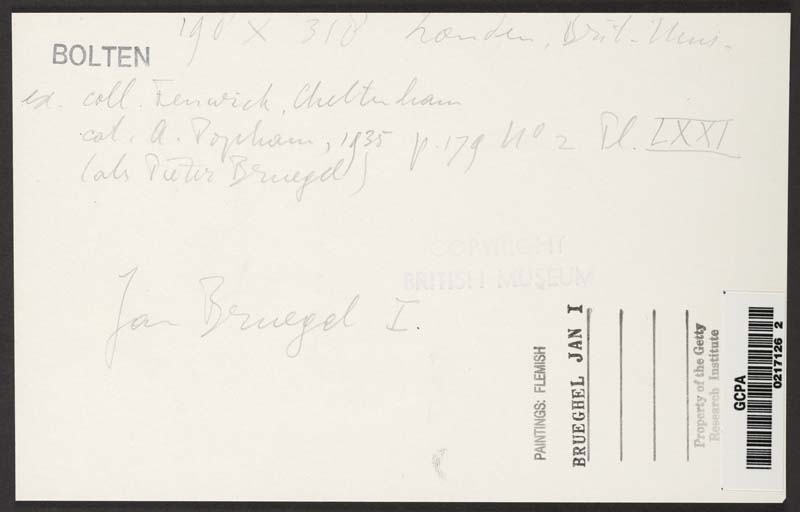 190 X 318 Londen, Brit. Mus.
BOLTEN
ex. coll. Fenwick, Cheltenham
cat. A. Popham, 1935 p.179 No 2 Pl. LXXI
(als Pieter Bruegel)
COPYRIGHT
BRITISH MUSEUM
Jan Bruegel I.
PAINTINGS: FLEMISH
BRUEGHEL JAN I
Property of the Getty
Research Institute
GCPA
0217126 2